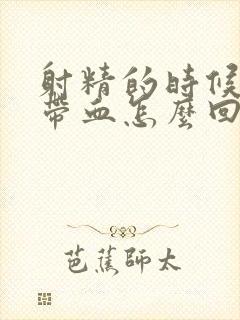 射精的時候
帶血怎麼回
芭蕉師太